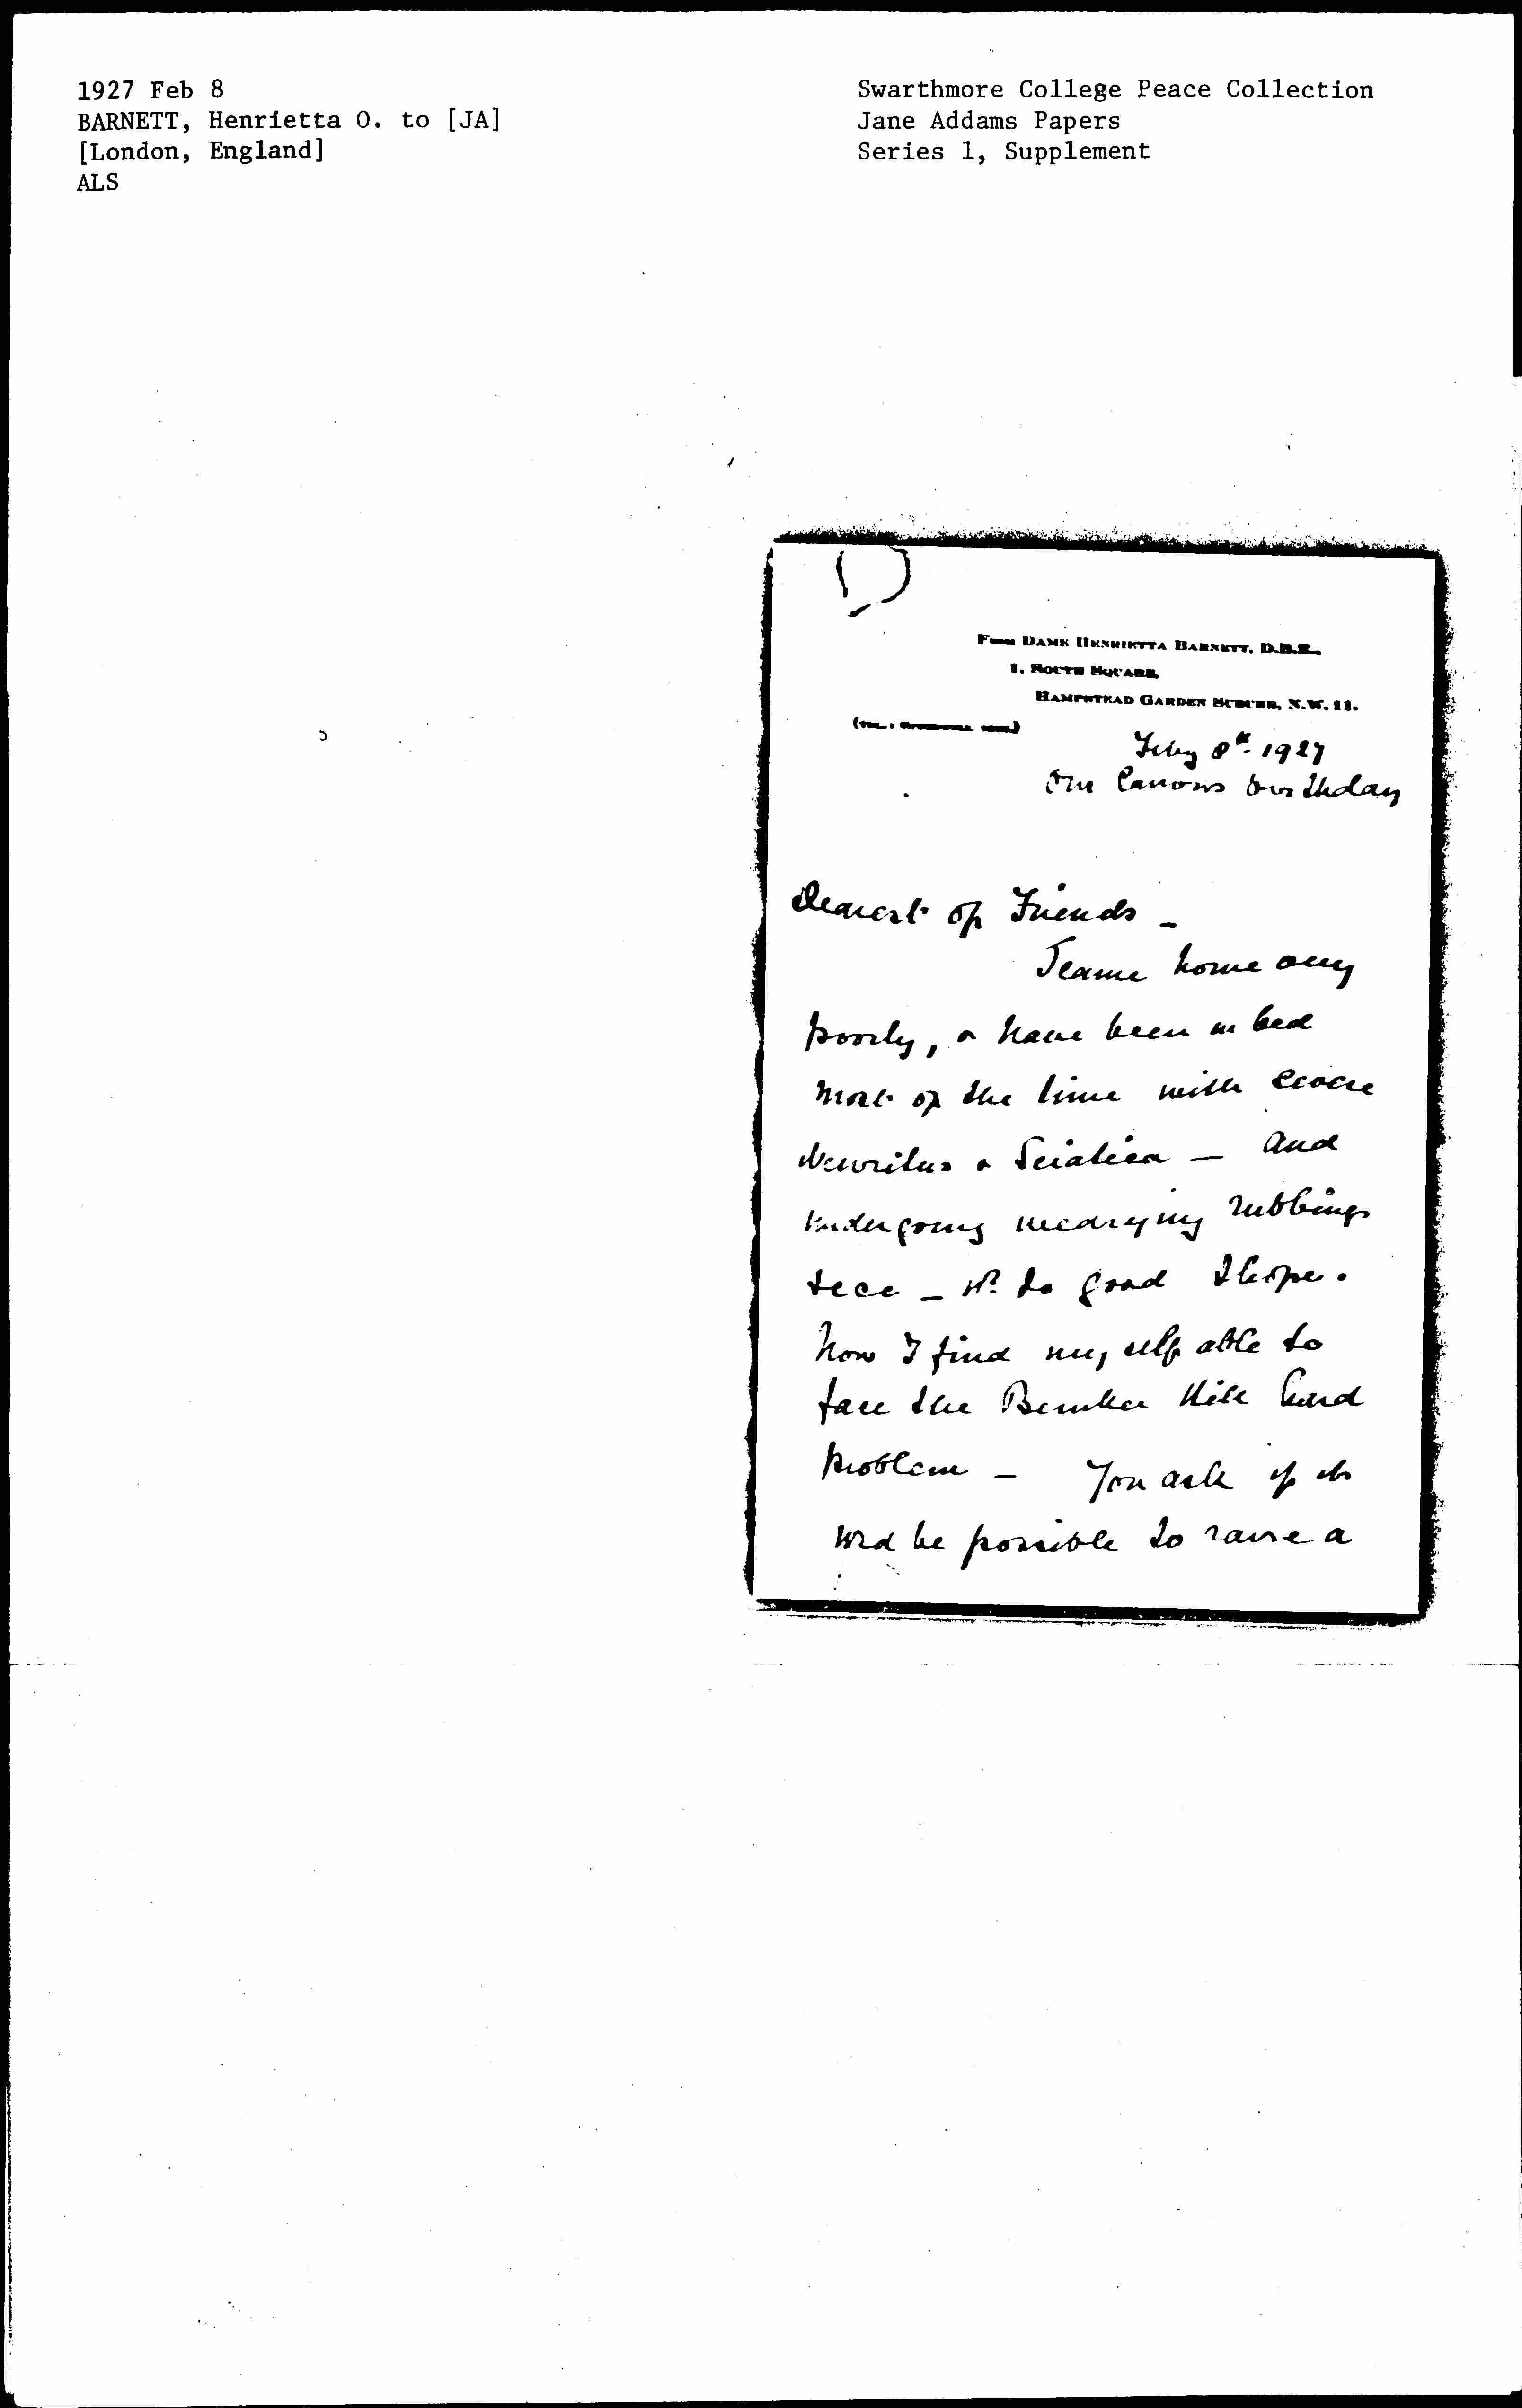 1927 Feb 8
BARNETT, Henrietta O. to [JA]
[London, England]
ALS
Swarthmore College Peace Collection
Jane Addams Papers
Series 1, Supplement
1)
From Dame Henrietta Barnett, D.B.E.,
1, South Square,
Hampstead Garden Suburb, N.W. 11.
(Tel.:
Feby 8th. 1927
Our Canons birthday
Dearest of Friends -
I came home very
poorly, & have been in bed
most of the time with severe
Neuritus & Sciatica - And
undergoing wearying rubbings
to good I hope.
Now I find myself able to
face the Bunker Hill
problem - You ask if it
wrd be possible to raise a